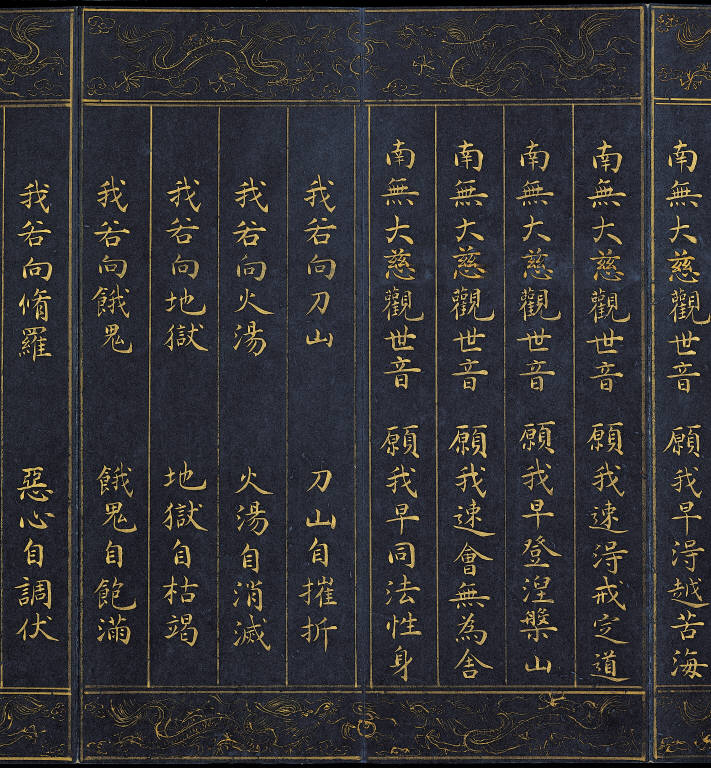 南無大慈觀世音 願我早淂越苦海
南無大慈觀世音 願我速淂戒定道
南無大慈觀世音 願我早登涅槃山
南無大慈觀世音 願我速會無為舎
南無大慈觀世音 願我早同法性身
我若向刀山 刀山自摧折
我若向火湯 火湯自消滅
我若向地獄 地獄自枯竭
我若向餓鬼 餓鬼自飽滿
我若向脩羅 惡心自調伏